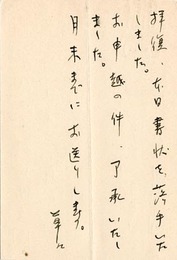 拝復、本日書状を落手いた
しました。
お申越の件、了承いたし
ました。
月末までにお送りします。
草々